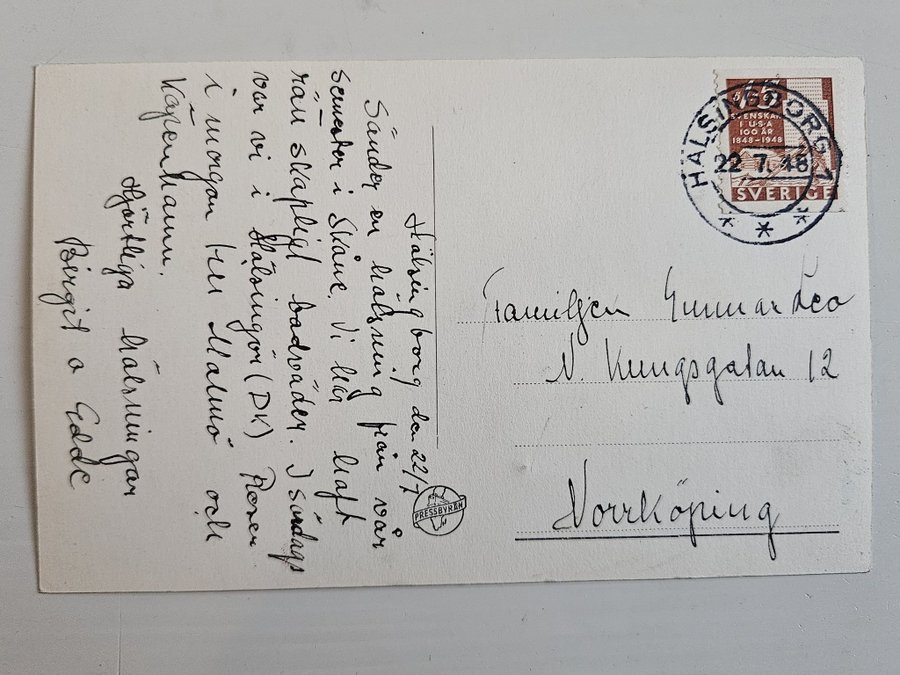 Hälsingborg den 22/7
Sänder en hälsning från vår
semester i Skåne. Vi har haft
rätt skapligt badväder. I söndags
var vi i Hälsingör (DK)
i morgon till Malmö och
Köpenhamn.
Hjärtliga hälsningar
Birgit o Edde
PRESSBYRÅN
HÄLSINGBORG 1
22 7. 48
15
SVENSKAR
I U.S.A
100 ÅR
1848-1948
SVERIGE
Familjen Gunnar Leo
N. Kungsgatan 12
Norrköping